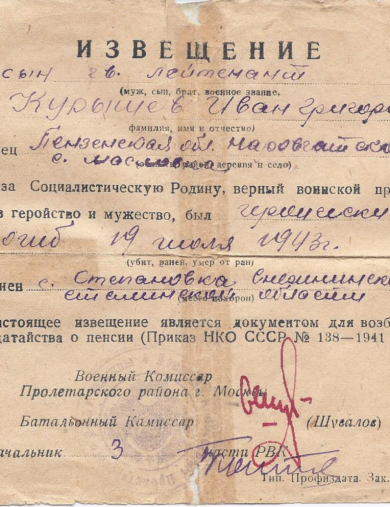 ИЗВЕЩЕНИЕ
сын гв. лейтенант
(муж, сын, брат, военное звание,
Курышев Иван Григор
фамилия, имя и отчество)
ец Пензенская обл.
с. Масловка
за Социалистическую Родину, верный воинской пр
в геройство и мужество, был геройски
огиб 19 июля 1943г.
(убит, ранен, умер от ран)
нен с. Степановка
Сталинской области
астоящее извещение является документом для возб
датайства о пенсии (Приказ НКО СССР № 138—1941
Военный Комиссар
Пролетарского района г. Москвы
Батальонный Комиссар (Шувалов)
ачальник 3 части РВК
Тип. Профиздата. Зак.